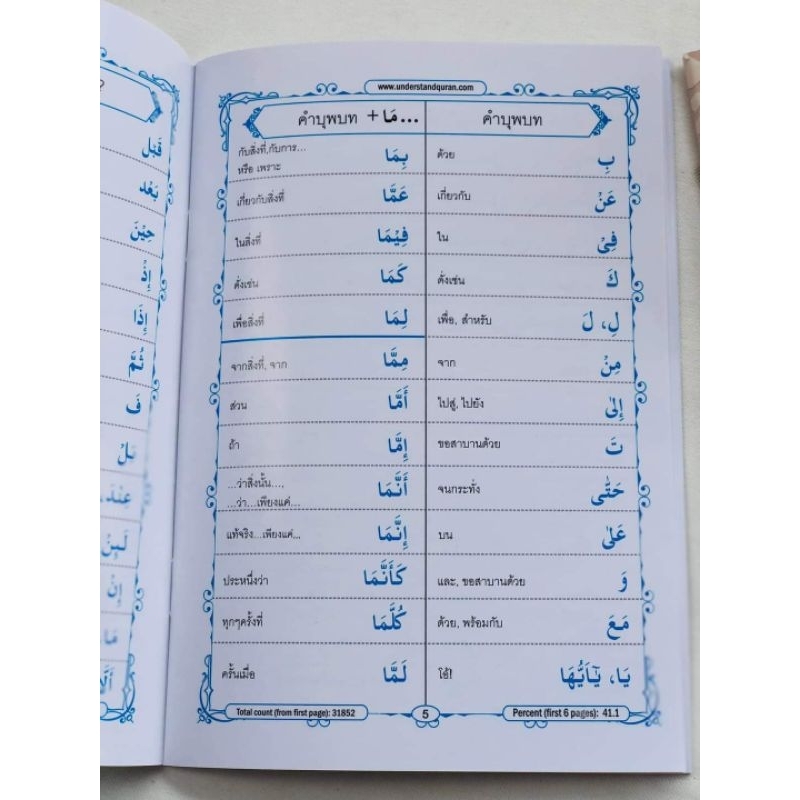 www.understandquran.com
คำบุพบท
بِ ด้วย
عَنْ เกี่ยวกับ
فِيْ ใน
كَ ดั่งเช่น
لِ، لَ เพื่อ, สำหรับ
مِنْ จาก
إِلىٰ ไปสู่, ไปยัง
تَ ขอสาบานด้วย
حَتّٰى จนกระทั่ง
عَلىٰ บน
وَ และ, ขอสาบานด้วย
مَعَ ด้วย, พร้อมกับ
يَا، يٰٓأَيُّهَا โอ้!
คำบุพบท + مَا...
بِمَا กับสิ่งที่,กับการ...
หรือ เพราะ
عَمَّا เกี่ยวกับสิ่งที่
فِيْمَا ในสิ่งที่
كَمَا ดั่งเช่น
لِمَا เพื่อสิ่งที่
مِمَّا จากสิ่งที่, จาก
أَمَّا ส่วน
إِمَّا ถ้า
أَنَّمَا ...ว่าสิ่งนั้น...,
...ว่า...เพียงแค่...
إِنَّمَا แท้จริง...เพียงแค่...
كَأَنَّمَا ประหนึ่งว่า
كُلَّمَا ทุกๆครั้งที่
لَمَّا ครั้นเมื่อ
Total count (from first page): 31852
5
Percent (first 6 pages): 41.1
قَبْل
بَعْد
حِيْنَ
إِذْ
إِذَا
ثُمَّ
فَ
بَلْ
عِنْدَ
إِنْ
مَا